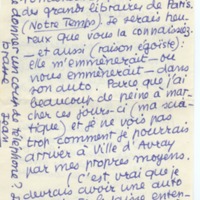 des grands libraires de Paris.
(Notre Temps). Je serais heu-
reux que vous la connaissiez.
— et aussi (raison égoïste):
elle m'emmènerait — ou
nous emmènerait — dans
son auto. Parce que j'ai
beaucoup de peine à mar-
cher ces jours-ci (ma scia-
tique) et je ne vois pas
trop comment je pourrais
arriver à Ville d'Avray
par mes propres moyens.
(C'est vrai que je
devrais avoir une auto
donner un coup de téléphone?
Jean